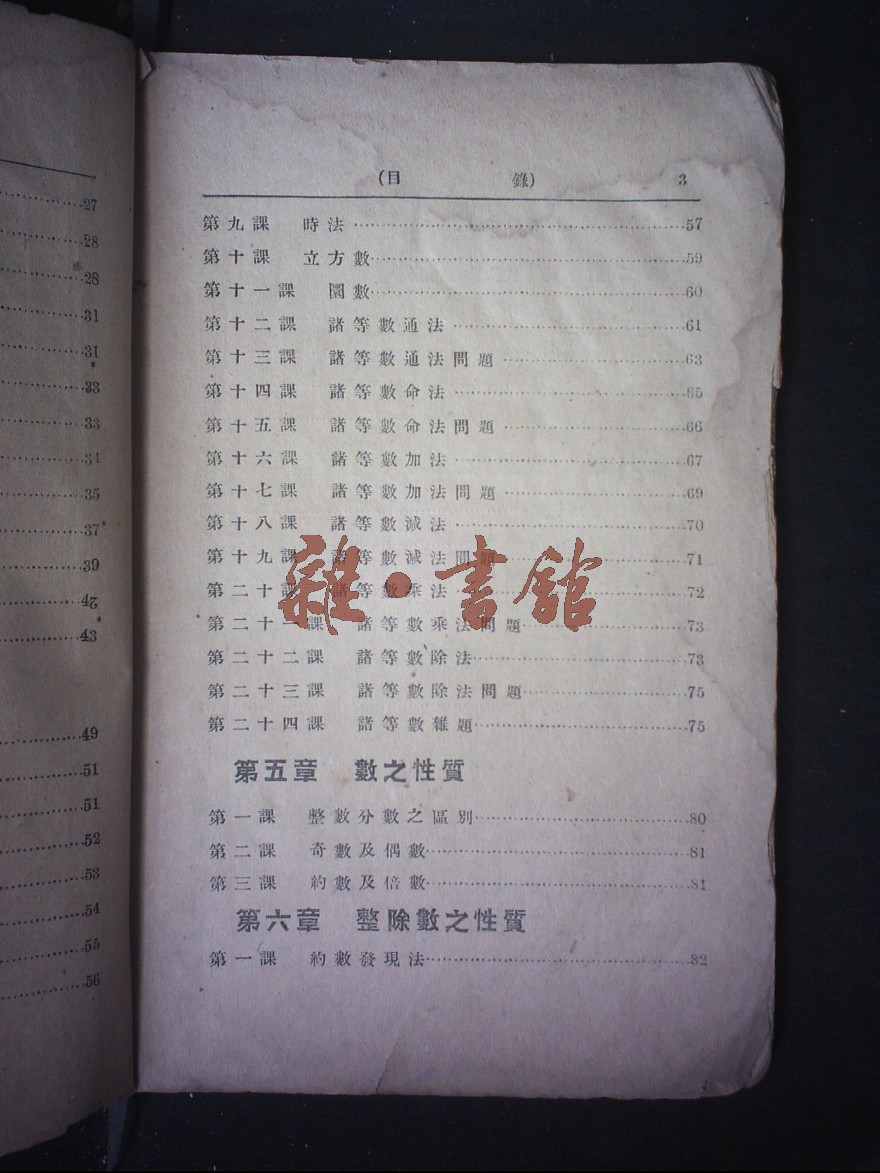 (目 錄) 3
第九課 時法 57
第十課 立方數 59
第十一課 圜數 60
第十二課 諸等數通法 61
第十三課 諸等數通法問題 63
第十四課 諸等數命法 65
第十五課 諸等數命法問題 66
第十六課 諸等數加法 67
第十七課 諸等數加法問題 69
第十八課 諸等數減法 70
第十九課 諸等數減法問題 71
第二十課 諸等數乘法 72
第二十一課 諸等數乘法問題 73
第二十二課 諸等數除法 73
第二十三課 諸等數除法問題 75
第二十四課 諸等數雜題 75
第五章 數之性質
第一課 整數分數之區別 80
第二課 奇數及偶數 81
第三課 約數及倍數 81
第六章 整除數之性質
第一課 約數發現法 82
雜·書館
27
28
28
31
31
33
33
34
35
37
39
42
43
49
51
51
52
53
54
55
56